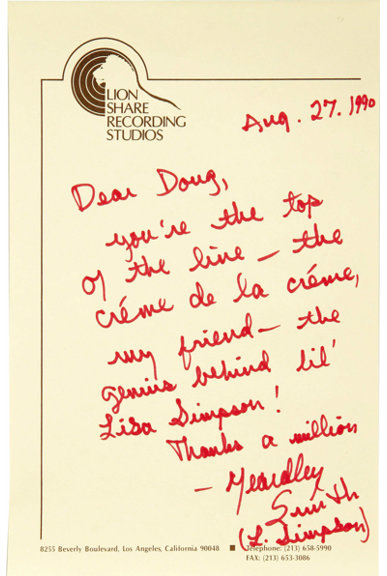 LION
SHARE
RECORDING
STUDIOS
Aug. 27. 1990
Dear Doug,
you're the top
of the line — the
créme de la créme,
my friend — the
genius behind lil'
Lisa Simpson!
Thanks a million
— Yeardley
Smith
(L. Simpson)
8255 Beverly Boulevard, Los Angeles, California 90048 ■ Telephone: (213) 658-5990
FAX: (213) 653-3086